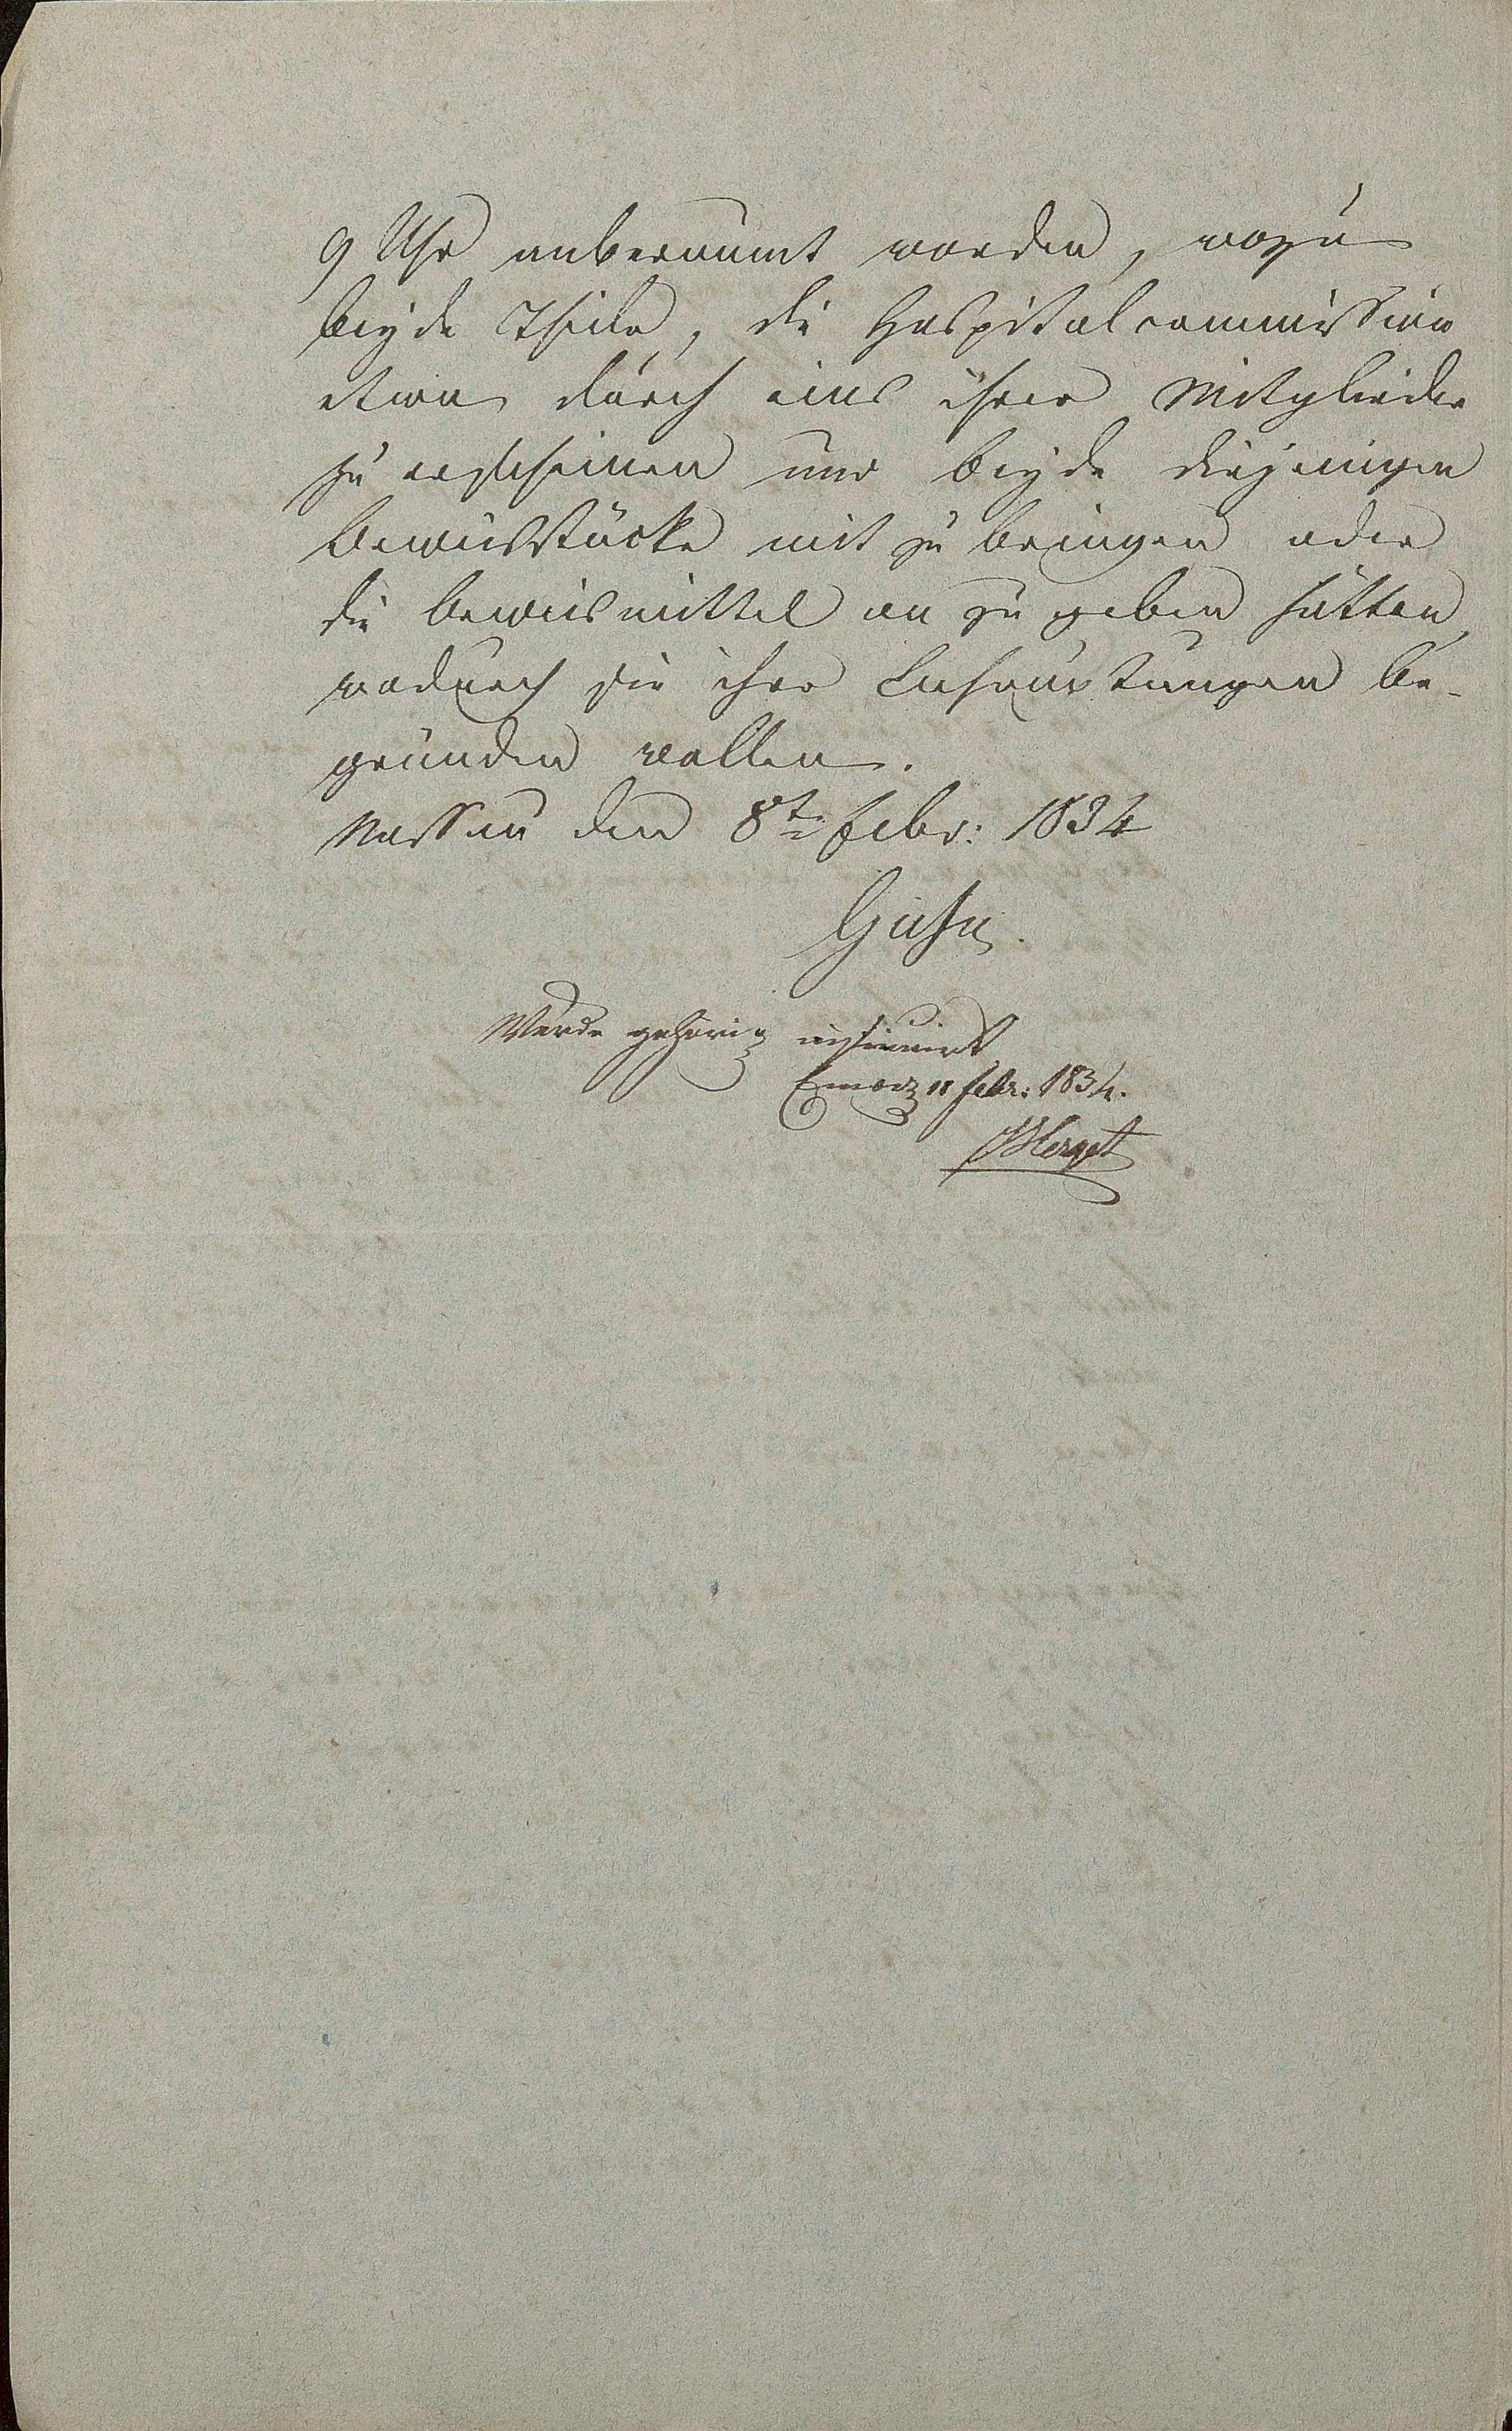 9 Uhr anberaumt worden, wozu
beyde Theile, die Hospitalcommission
etwa durch eins ihrer Mitglieder
zu erscheinen und beyde diejenigen
Beweisstücke mit zu bringen oder
die Beweismittel an zu geben hätten,
wodurch sie ihre Behauptungen be-
gründen wollen.
Nassau den 8t Febr: 1834
Werde gehörig insinuirt
11 Febr: 1834.
Herget